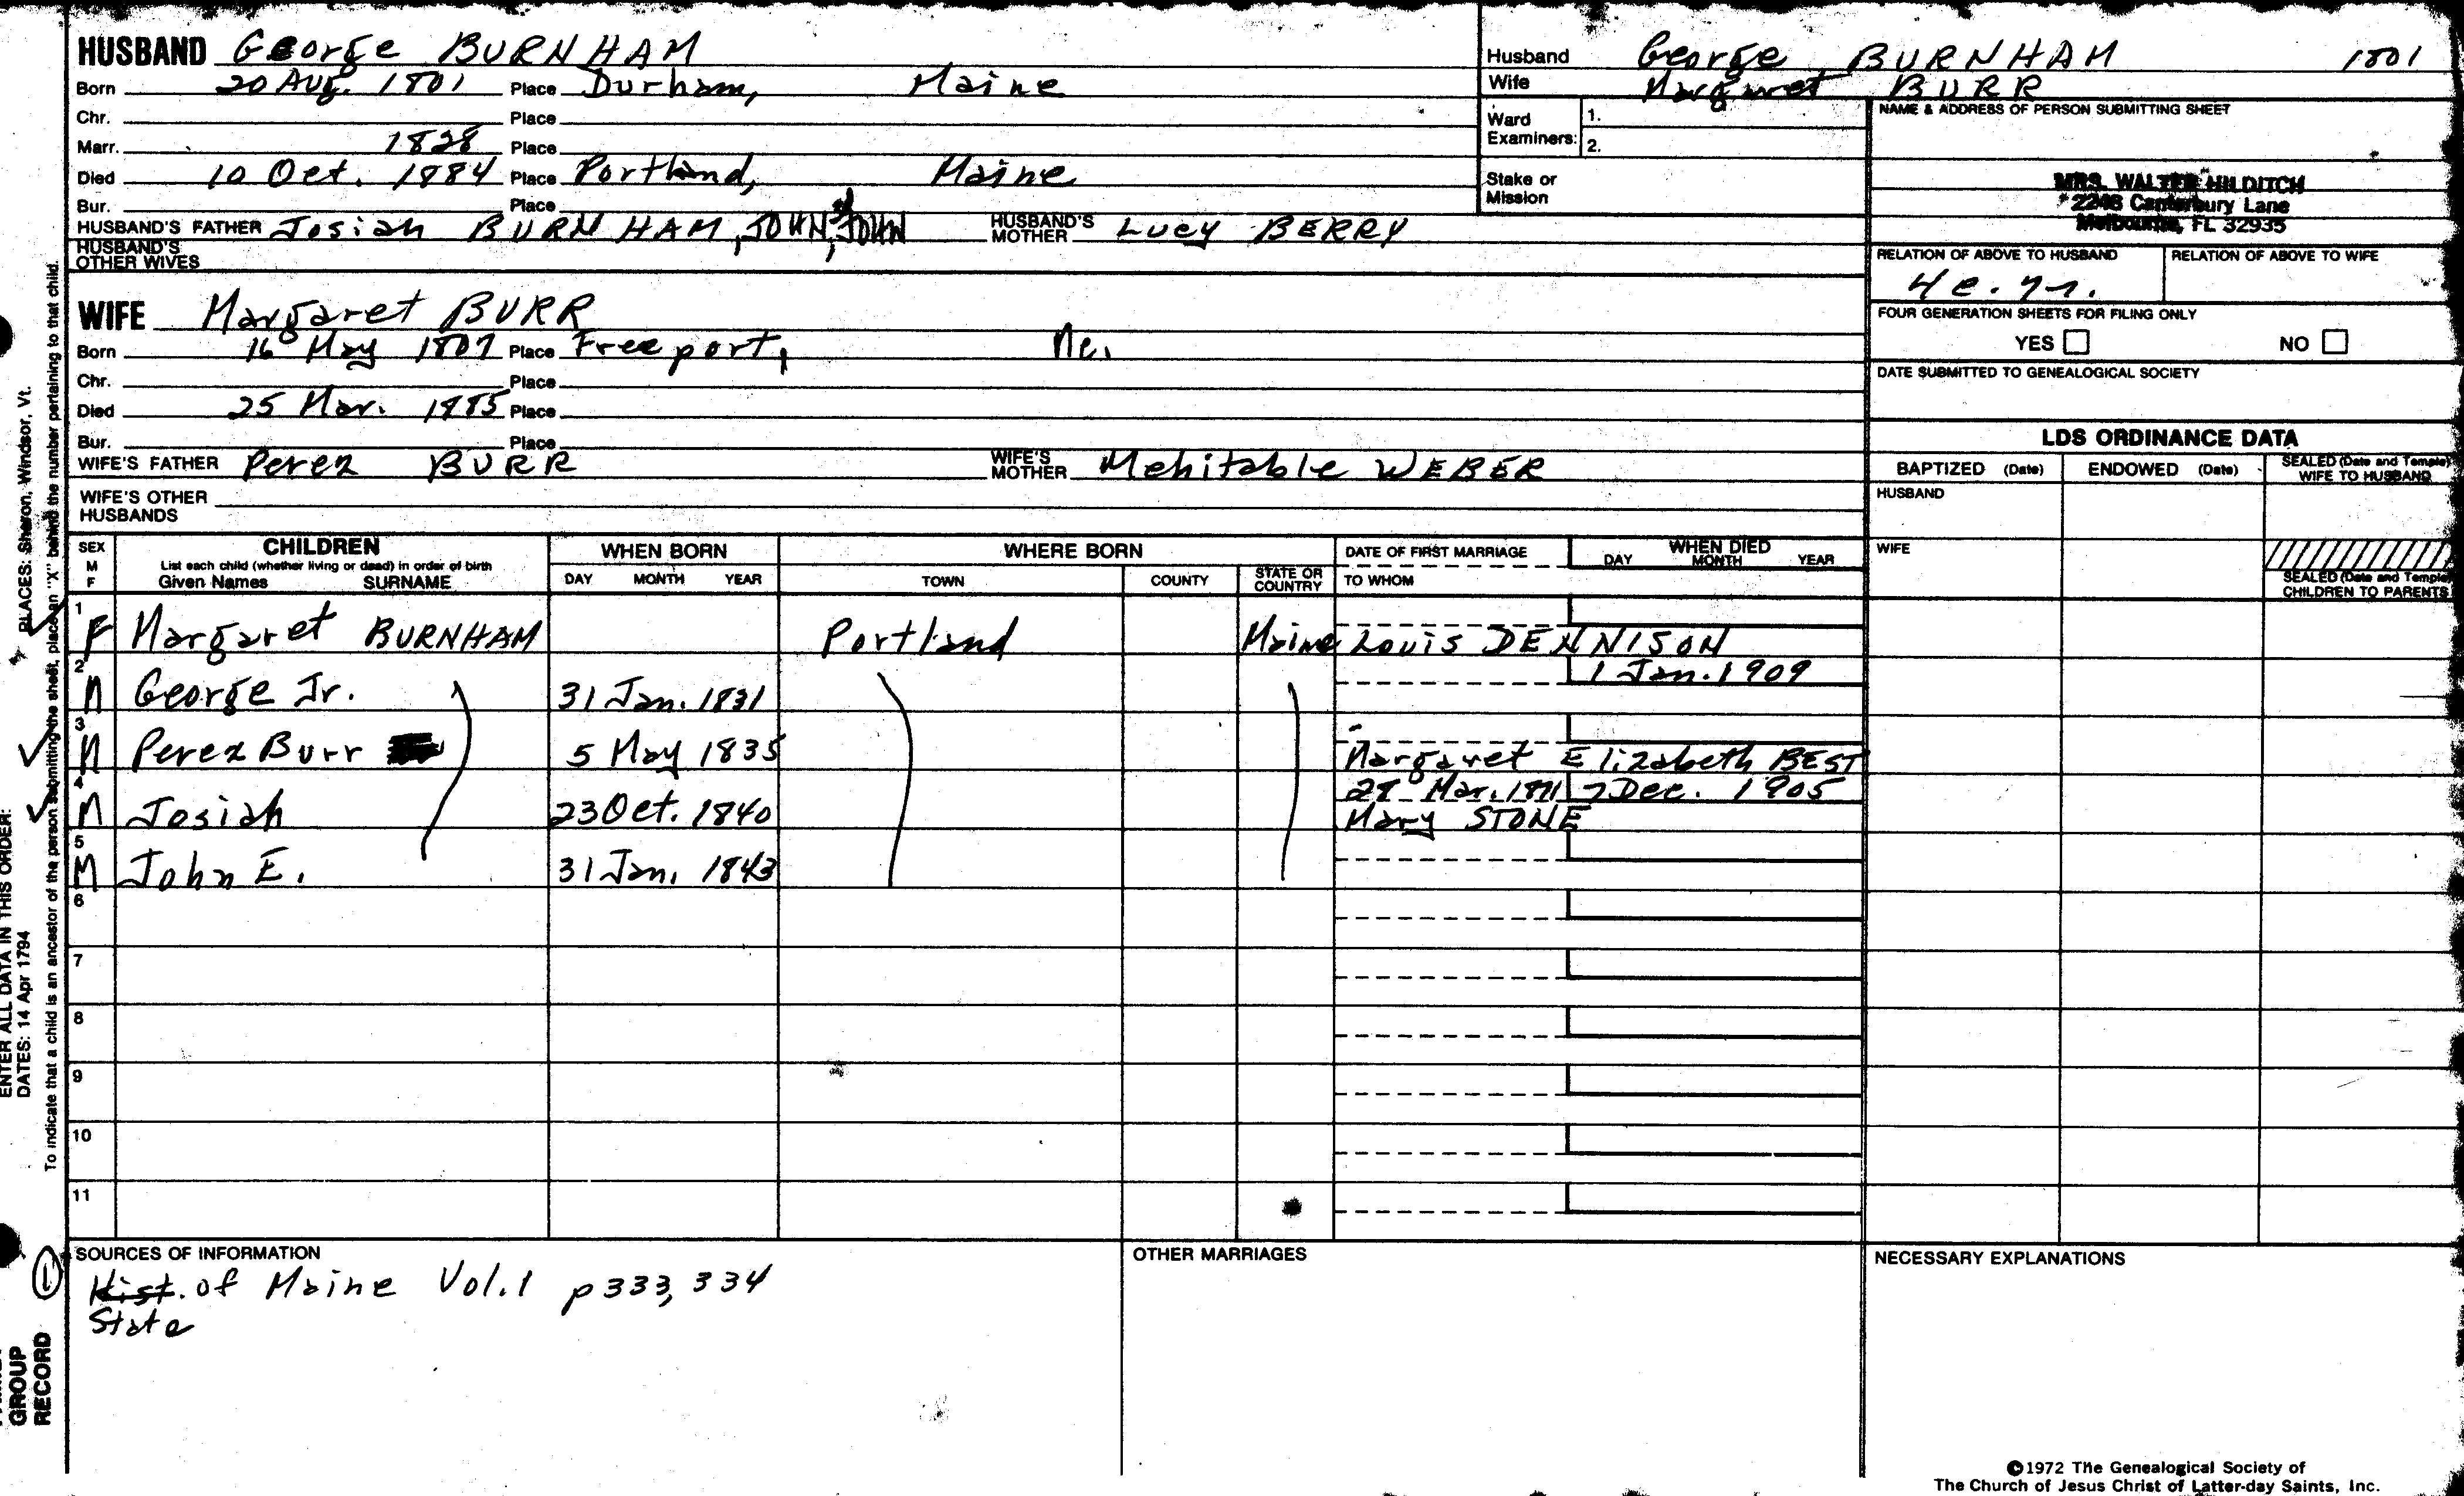 HUSBAND George BURNHAM
Born 20 Aug. 1801 Place Durham, Maine
Chr. Place
Marr. 1828 Place
Died 10 Oct. 1884 Place Portland, Maine
Bur. Place
HUSBAND'S FATHER Josiah BURNHAM, JOHN, JOHN HUSBAND'S MOTHER Lucy BERRY
HUSBAND'S OTHER WIVES
WIFE Margaret BURR
Born 16 May 1807 Place Freeport, Me.
Chr. Place
Died 25 Mar. 1885 Place
Bur. Place
WIFE'S FATHER Perez BURR WIFE'S MOTHER Mehitable WEBER
WIFE'S OTHER HUSBANDS
Husband George BURNHAM 1801
Wife Margaret BURR
Ward Examiners: 1.
2.
Stake or Mission
NAME & ADDRESS OF PERSON SUBMITTING SHEET
MRS. WALTER HILDITCH
2248 Canterbury Lane
Melbourne, FL 32935
RELATION OF ABOVE TO HUSBAND RELATION OF ABOVE TO WIFE
FOUR GENERATION SHEETS FOR FILING ONLY
YES NO
DATE SUBMITTED TO GENEALOGICAL SOCIETY
LDS ORDINANCE DATA
BAPTIZED (Date) ENDOWED (Date) SEALED (Date and Temple) WIFE TO HUSBAND
HUSBAND
WIFE
SEALED (Date and Temple) CHILDREN TO PARENTS
SEX M F
CHILDREN
List each child (whether living or dead) in order of birth
Given Names SURNAME
WHEN BORN
DAY MONTH YEAR
WHERE BORN
TOWN COUNTY STATE OR COUNTRY
DATE OF FIRST MARRIAGE
TO WHOM
WHEN DIED
DAY MONTH YEAR
1 F Margaret BURNHAM Portland Maine Louis DENNISON
2 M George Jr. 31 Jan. 1831 1 Jan. 1909
3 M Perez Burr 5 May 1835 Margaret Elizabeth BEST
4 M Josiah 23 Oct. 1840 28 Mar. 1871 7 Dec. 1905
Mary STONE
5 M John E. 31 Jan. 1843
6
7
8
9
10
11
SOURCES OF INFORMATION
Hist. of Maine Vol. 1 p 333, 334
State
OTHER MARRIAGES
NECESSARY EXPLANATIONS
©1972 The Genealogical Society of
The Church of Jesus Christ of Latter-day Saints, Inc.
ENTER ALL DATA IN THIS ORDER:
DATES: 14 Apr 1794 PLACES: Sharon, Windsor, Vt.
To indicate that a child is an ancestor of the person submitting the sheet, place an "X" behind the number pertaining to that child.
1
GROUP
RECORD